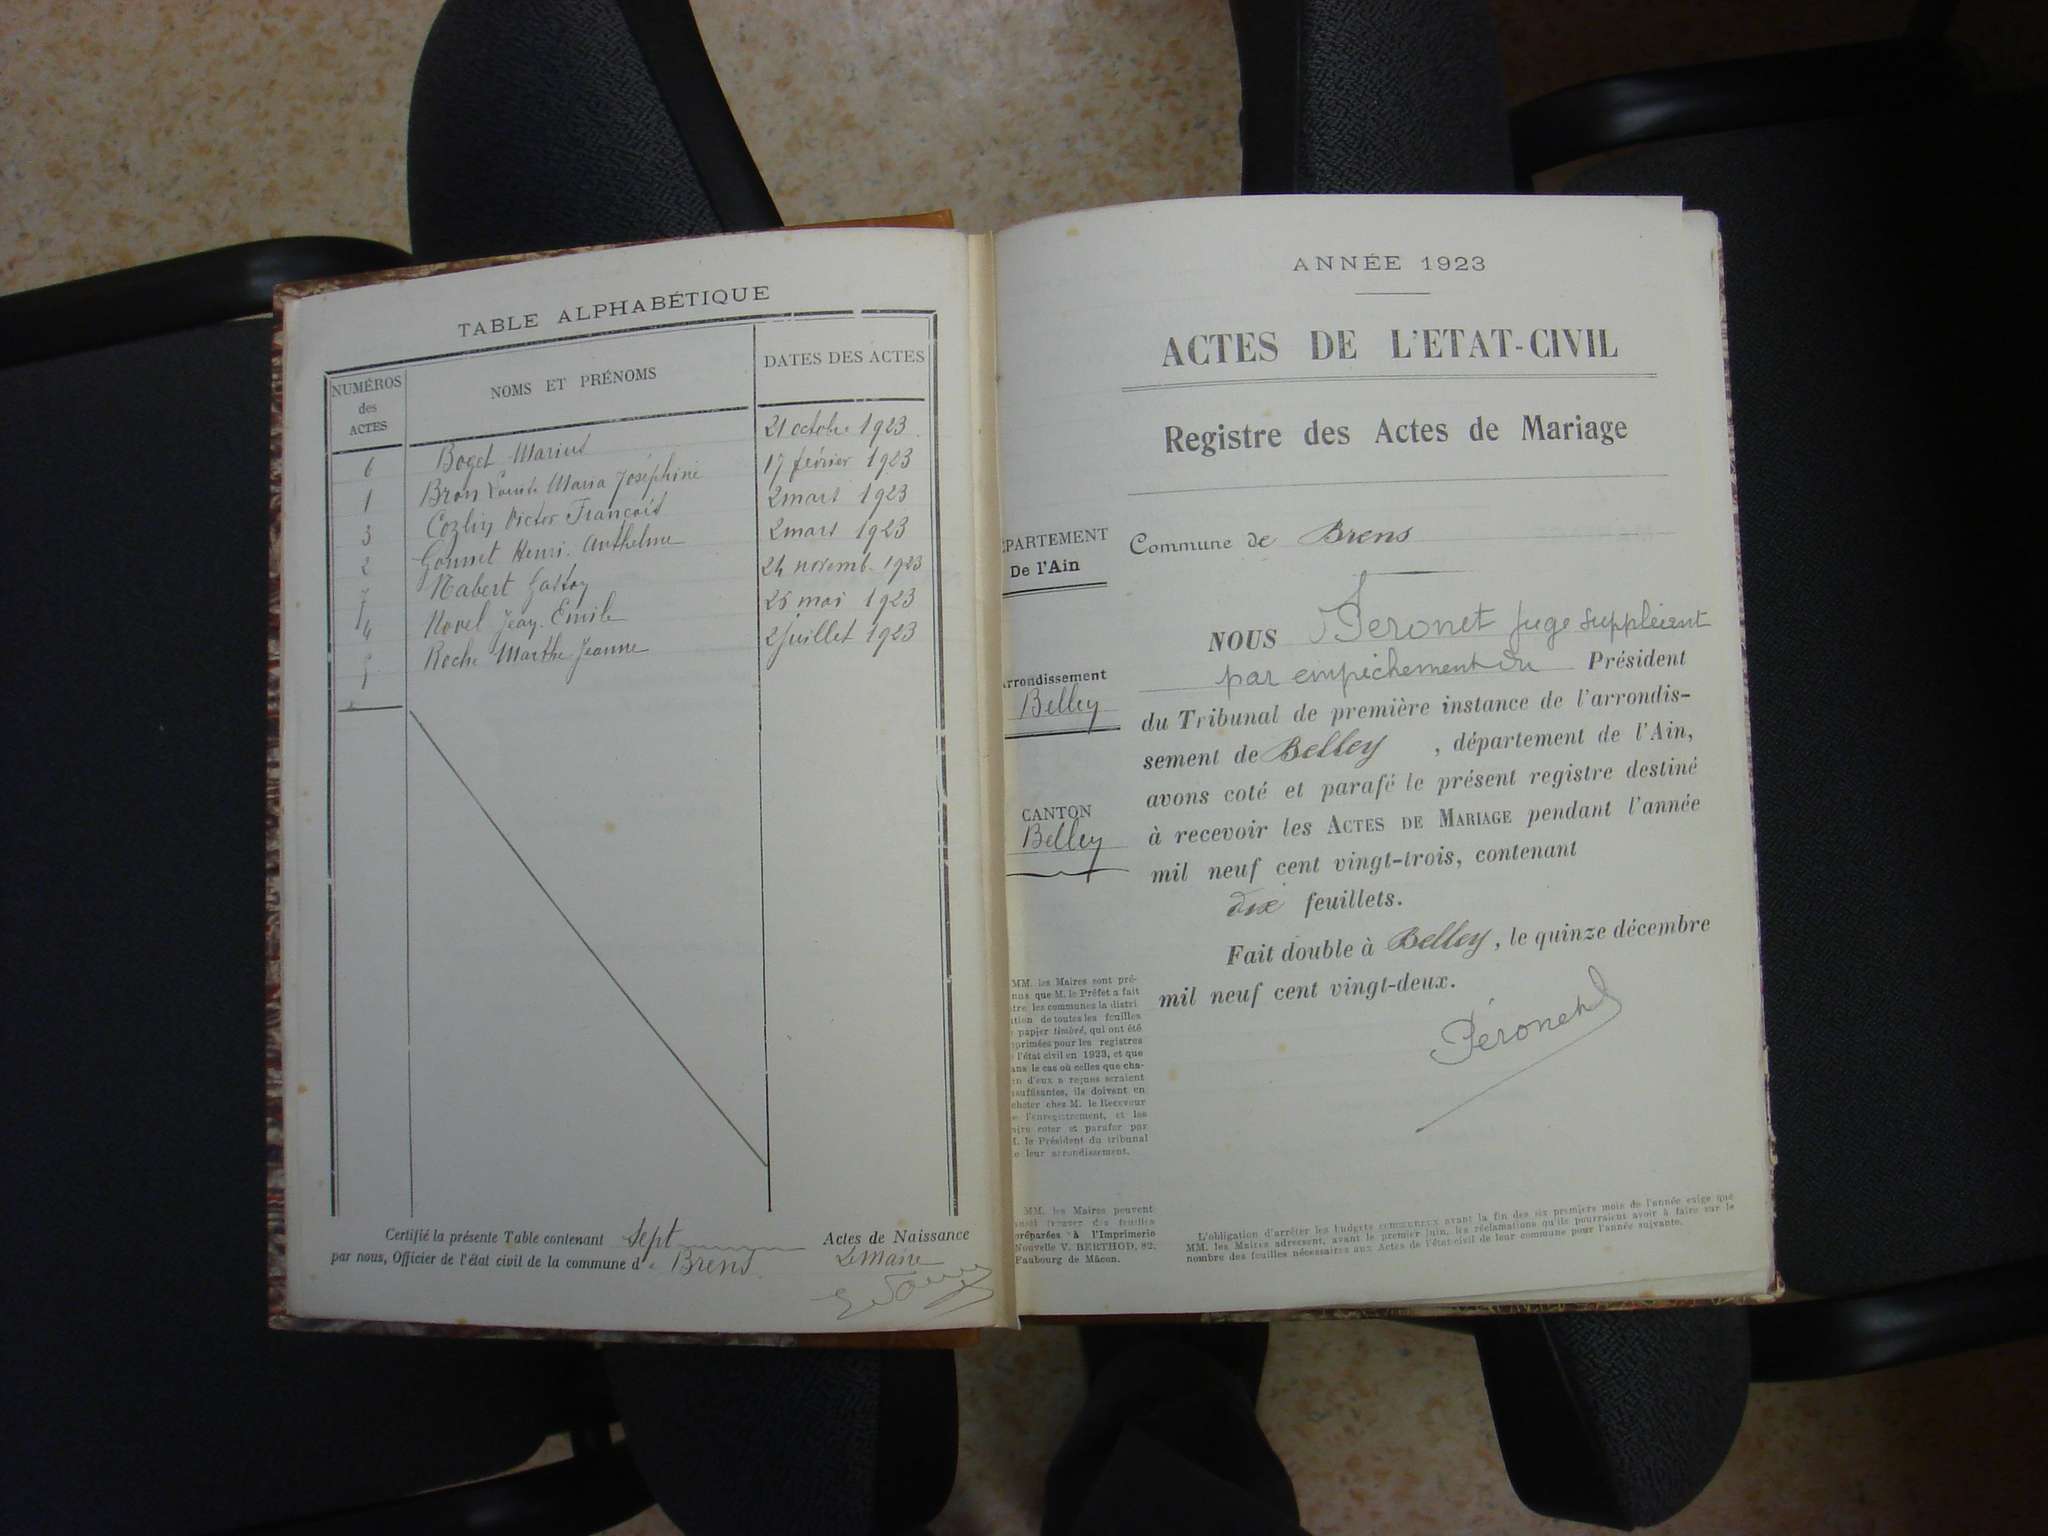 TABLE ALPHABÉTIQUE
NUMÉROS des ACTES
NOMS ET PRÉNOMS
DATES DES ACTES
6 Boget Marius 21 octobre 1923
1 Bron Maria Joséphine 17 février 1923
3 Victor François 2 mars 1923
2 Gonnet Henri Anthelme 2 mars 1923
7 Nabert Gaston 24 novemb. 1923
4 Novel Jean Emile 25 mai 1923
Roche Marthe Jeanne 2 juillet 1923
Certifié la présente Table contenant Sept Actes de Naissance
par nous, Officier de l'état civil de la commune de Brens
Le Maire
ANNÉE 1923
ACTES DE L'ETAT-CIVIL
Registre des Actes de Mariage
PARTEMENT
De l'Ain
rrondissement
Belley
CANTON
Belley
MM. les Maires sont pré-
nus que M. le Préfet a fait
tre les communes la distri
tion de toutes les feuilles
papier timbré, qui ont été
primées pour les registres
l'état civil en 1923, et que
ans le cas où celles que cha-
n d'eux a reçues seraient
suffisantes, ils doivent en
cheter chez M. le Receveur
e l'enregistrement, et les
aire coter et parafer par
M. le Président du tribunal
e leur arrondissement.
MM. les Maires peuvent
trouver des feuilles
préparées à l'Imprimerie
Nouvelle V. BERTHOD, 82,
Faubourg de Mâcon.
Commune de Brens
NOUS Peronet Juge suppléant
par empêchement du Président
du Tribunal de première instance de l'arrondis-
sement de Belley, département de l'Ain,
avons coté et parafé le présent registre destiné
à recevoir les ACTES DE MARIAGE pendant l'année
mil neuf cent vingt-trois, contenant
dix feuillets.
Fait double à Belley, le quinze décembre
mil neuf cent vingt-deux.
Péronet
L'obligation d'arrêter les budgets communaux avant la fin des six premiers mois de l'année exige que
MM. les Maires adressent, avant le premier juin, les réclamations qu'ils pourraient avoir à faire sur le
nombre des feuilles nécessaires aux Actes de l'état-civil de leur commune pour l'année suivante.